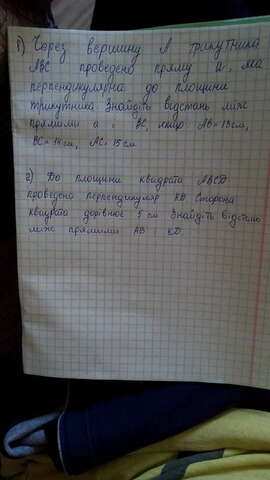 1) Через вершину А трикутника
АВС проведено пряму а, яка
перпендикулярна до площини
трикутника. Знайдіть відстань між
прямими а і ВС, якщо АВ=13см,
ВС=14см, АС=15см
2) До площини квадрата АВСD
проведено перпендикуляр КD Сторона
квадрата дорівнює 5 см Знайдіть відстань
між прямими АВ КD